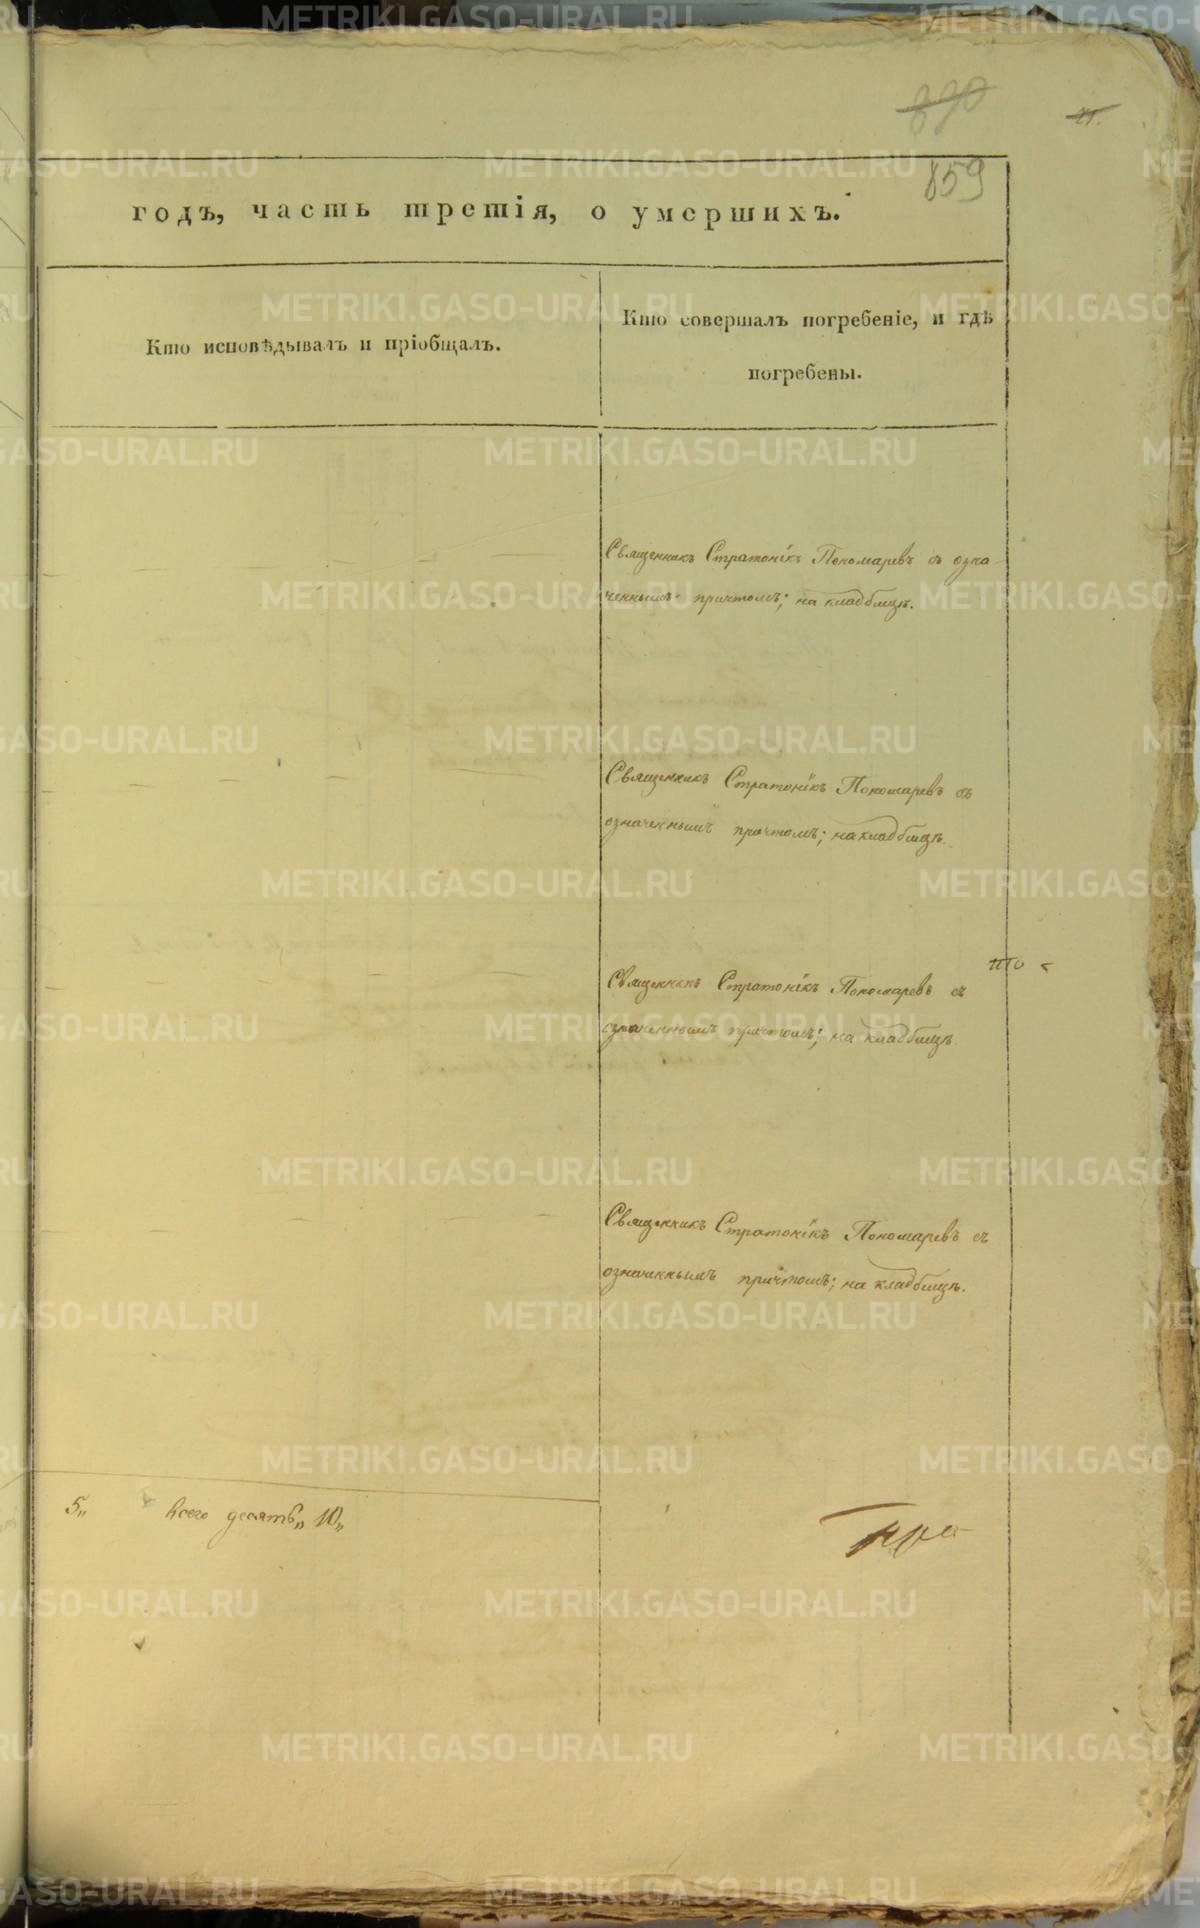 890
21.
859
годъ, часть третія, о умершихъ.
Кто исповѣдывалъ и пріобщалъ.
Кто совершалъ погребеніе, и гдѣ
погребены.
Священникъ Стратоникъ Пономаревъ съ озна-
ченнымъ причтомъ; на кладбищѣ.
Священникъ Стратоникъ Пономаревъ съ
означеннымъ причтомъ; на кладбищѣ.
Священникъ Стратоникъ Пономаревъ съ
означеннымъ причтомъ; на кладбищѣ.
Священникъ Стратоникъ Пономаревъ съ
означеннымъ причтомъ; на кладбищѣ.
5„ Всего десять„ 10„
METRIKI.GASO-URAL.RU